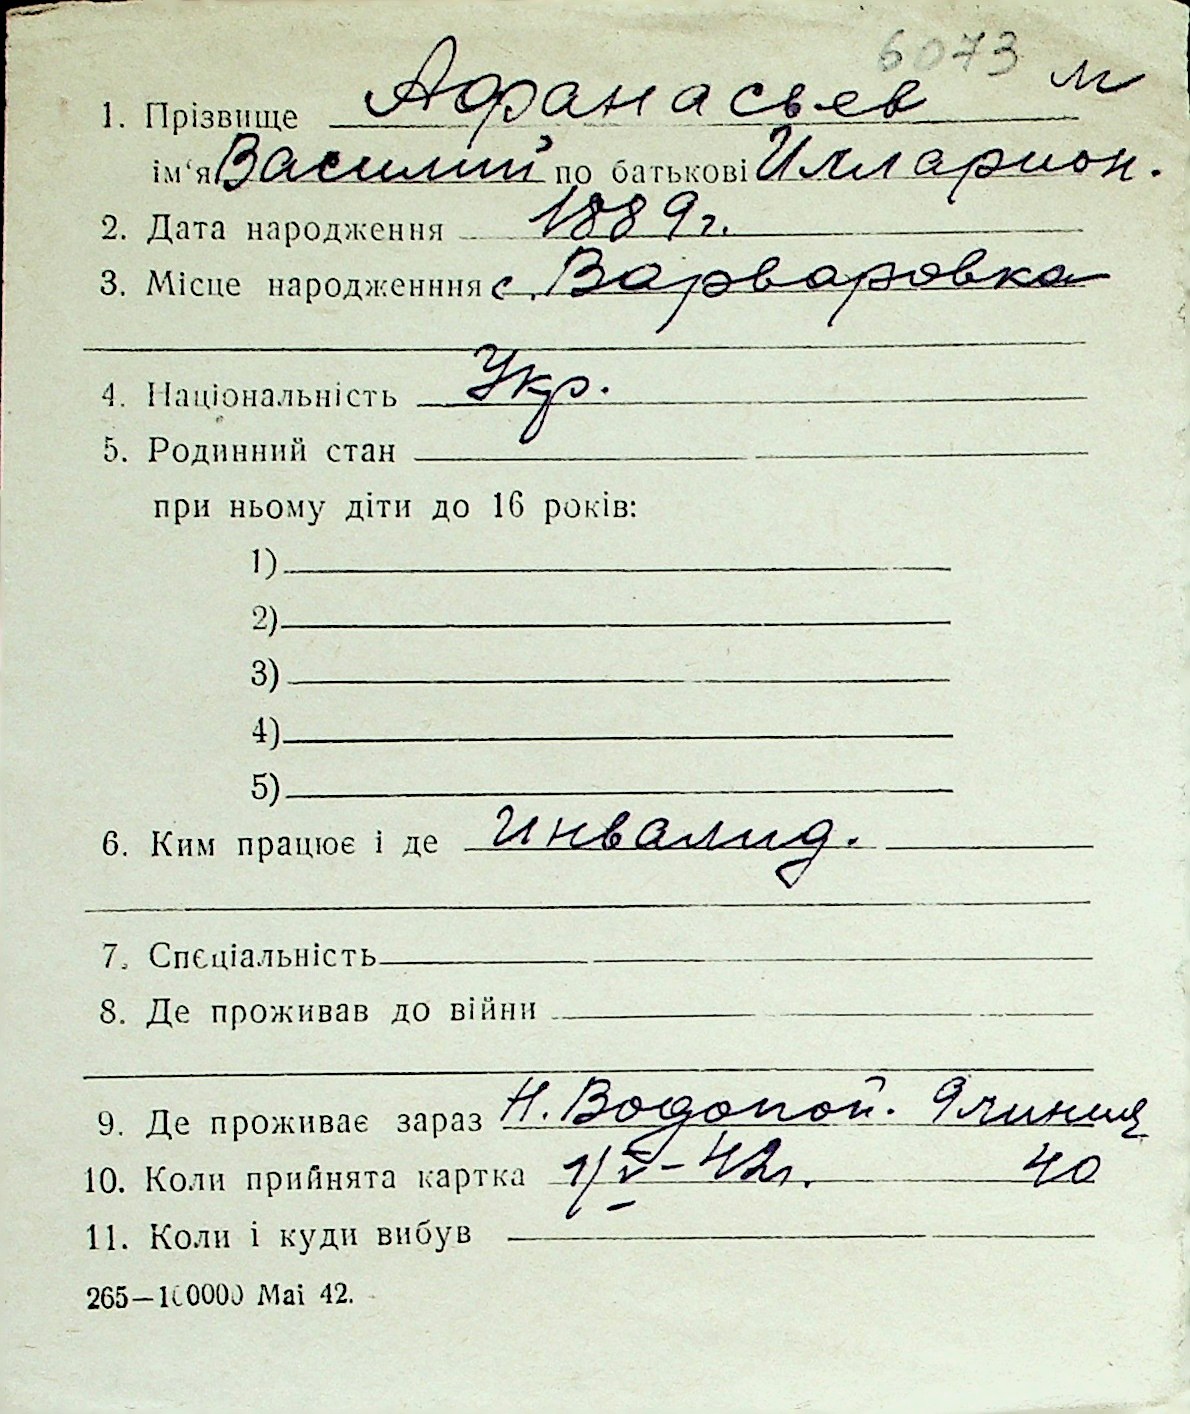 6073 м
1. Прізвище Афанасьев
ім‘я Василий по батькові Илларион.
2. Дата народження 1889г.
3. Місце народженння с. Варваровка
4. Національність Укр.
5. Родинний стан
при ньому діти до 16 років:
1)
2)
3)
4)
5)
6. Ким працює і де инвалид.
7. Спеціальність
8. Де проживав до війни
9. Де проживає зараз Н. Водопой. 9 линия
10. Коли прийнята картка 1/V–42г. 40
11. Коли і куди вибув
265—100000 Mai 42.